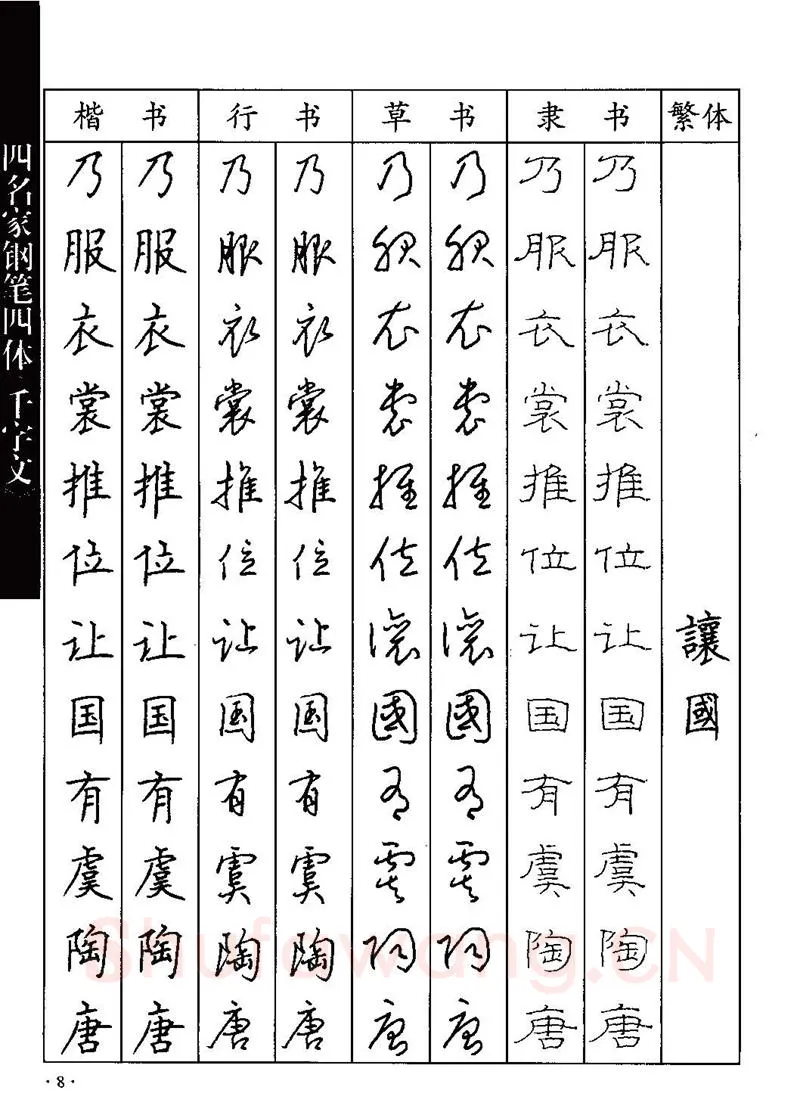 四名家钢笔四体《千字文》
楷书 行书 草书 隶书 繁体
乃服衣裳推位让国有虞陶唐
乃服衣裳推位让国有虞陶唐
乃服衣裳推位让国有虞陶唐
乃服衣裳推位让国有虞陶唐
乃服衣裳推位讓國有虞陶唐
乃服衣裳推位讓國有虞陶唐
乃服衣裳推位让国有虞陶唐
乃服衣裳推位让国有虞陶唐
讓國
Shufawang.CN
·8·